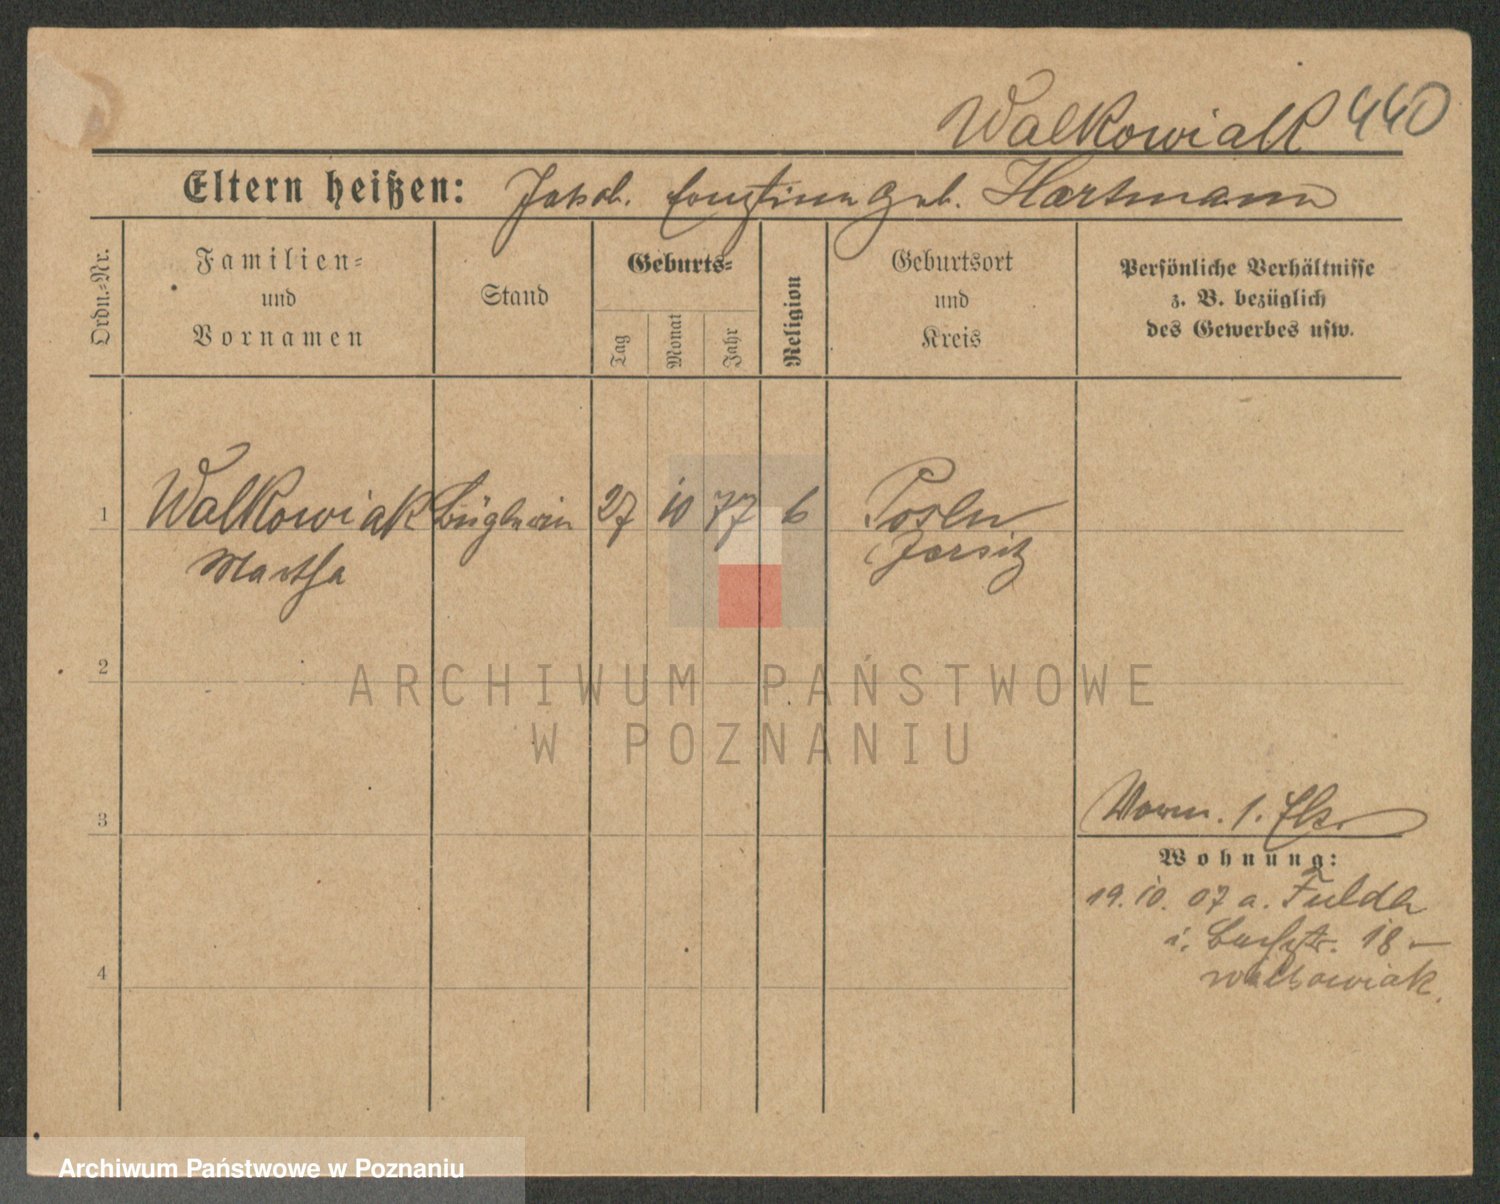 Walkowiak 440
Eltern heißen: Jakob. geb. Hartmann
Ordn.-Nr.
Familien-
und
Vornamen
Stand
Geburts-
Tag
Monat
Jahr
Religion
Geburtsort
und
Kreis
Persönliche Verhältnisse
z. B. bezüglich
des Gewerbes usw.
1 Walkowiak Büglerin 27 10 77 Posen
Martha Jersitz
2
ARCHIWUM PAŃSTWOWE
W POZNANIU
3
Wohnung:
19. 10. 07 a. Fulda
i. 18 -
Walkowiak.
4
Archiwum Państwowe w Poznaniu